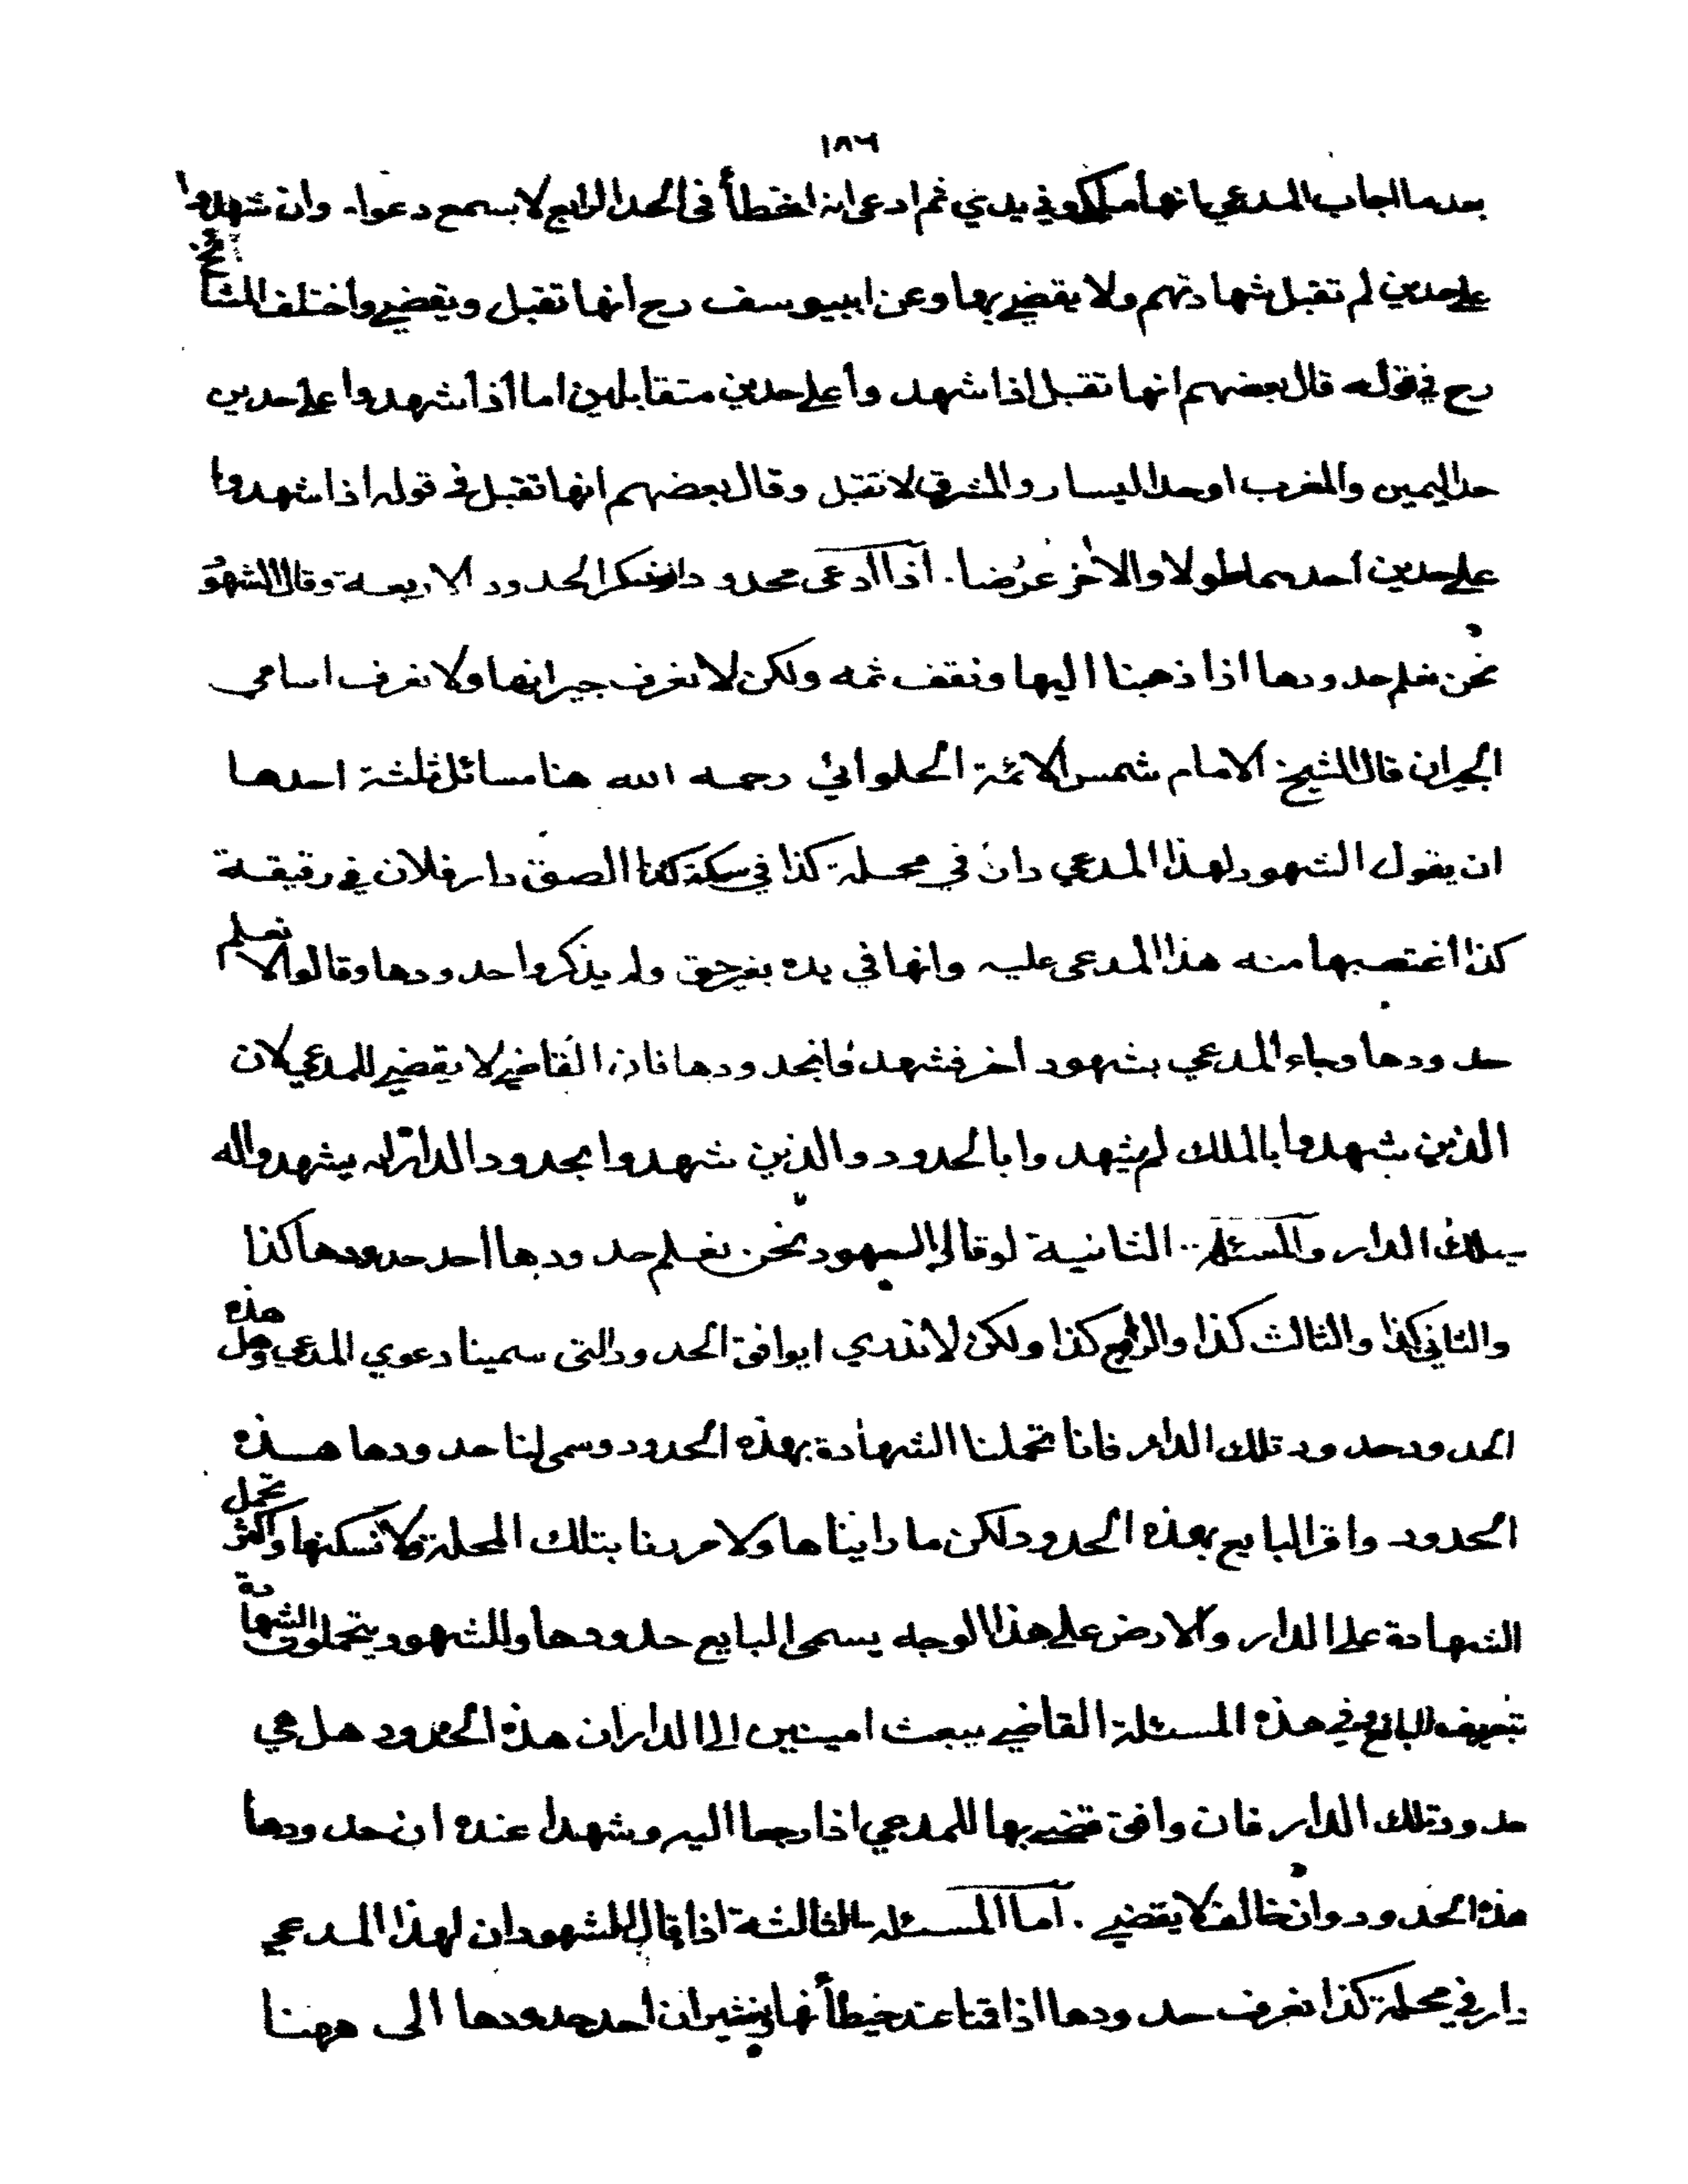 ١٨٦
بعدما اجاب المدعي بانها ملكي وفي يدي ثم ادعى انه اخطأ في الحد الرابع لا يسمع دعواه وان شهدوا
على حدين لم تقبل شهادتهم ولا يقضي بها وعن ابييوسف رح انها تقبل ويقضي واختلف المشائخ
رح في قوله قال بعضهم انها تقبل اذا شهدوا على حدين متقابلين اما اذا شهدوا على حدين
حد اليمين والمغرب او حد اليسار والمشرق لا تقبل وقال بعضهم انها تقبل في قوله اذا شهدوا
على حدين احدهما طولا والاخر عرضا. اذا ادعى محدودا وذكر الحدود الاربعة وقال الشهود
نحن نعلم حدودها اذا ذهبنا اليها ونقف ثمه ولكن لا نعرف جيرانها ولا نعرف اسامي
الجيران قال الشيخ الامام شمس الائمة الحلوائي رحمه الله هنا مسائل ثلثة احدها
ان يقول الشهود لهذا المدعي دار في محلة كذا في سكة كذا الصق دار فلان في رقيقة
كذا اغتصبها منه هذا المدعى عليه وانها في يده بغير حق ولم يذكروا حدودها وقالوا لا نعلم
حدودها وجاء المدعي بشهود اخر فشهدوا بحدودها فان القاضي لا يقضي للمدعي لان
الذين شهدوا بالملك لم يشهدوا بالحدود والذين شهدوا بحدود الدار لم يشهدوا له
بملك الدار والمسئلة الثانية لو قال الشهود نحن نعلم حدودها احد حدودها كذا
والثاني كذا والثالث كذا والرابع كذا ولكن لا ندري ايوافق الحدود التي سمينا دعوي المدعي وهل هذه
الحدود حدود تلك الدار فانا تحملنا الشهادة بهذه الحدود وسمى لنا حدودها هذه
الحدود واقر البايع بهذه الحدود لكن ما رايناها ولا مررنا بتلك المحلة ولا نسكنها واكثر تحمل
الشهادة على الدار والارض على هذا الوجه يسمى البايع حدودها والشهود يتحملون الشهادة
بتعريف البائع وفي هذه المسئلة القاضي يبعث امينين الى الدار ان هذه الحدود هل هي
حدود تلك الدار فان وافق قضي بها للمدعي اذا رجعا اليه وشهدا عنده ان حدودها
هذه الحدود وان خالف لا يقضي. اما المسئلة الثالثة اذا قال الشهود ان لهذا المدعي
دار في محلة كذا نعرف حدودها اذا قمنا عند حيطانها ونشير ان احد حدودها الى ههنا